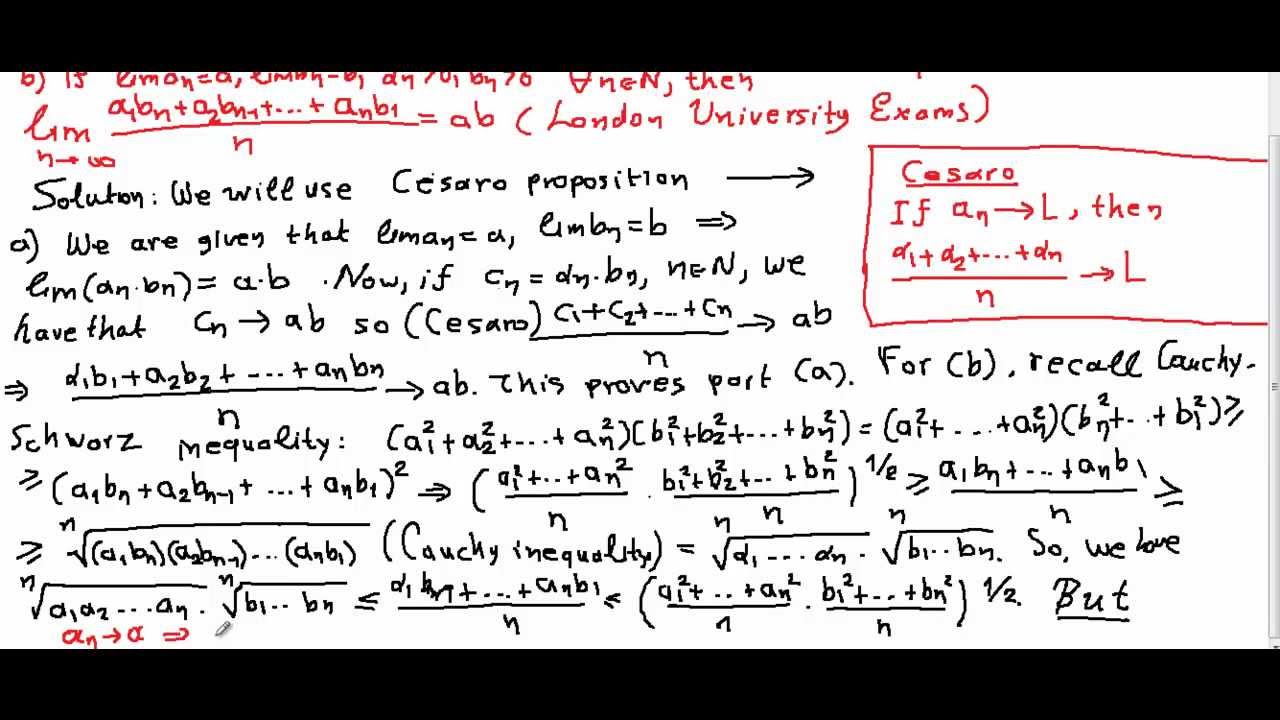 b) If lim an=a, lim bn=b, an>0, bn>0 ∀n∈N, then
lim n→∞ (a1bn+a2bn-1+...+anb1)/n = ab (London University Exams)
Solution: We will use Cesaro proposition →
Cesaro
If an→L, then
(a1+a2+...+an)/n → L
a) We are given that liman=a, limbn=b ⇒
lim(an.bn)=a.b .Now, if cn=an.bn, n∈N, we
have that cn→ab so (Cesaro) (c1+c2+...+cn)/n → ab
⇒ (a1b1+a2b2+...+anbn)/n → ab. This proves part (a). For (b), recall Cauchy-
Schworz inequality: (a1²+a2²+...+an²)(b1²+b2²+...+bn²)=(a1²+...+an²)(bn²+...+b1²)≥
≥(a1bn+a2bn-1+...+anb1)² ⇒ ((a1²+...+an²)/n . (b1²+b2²+...+bn²)/n)^1/2 ≥ (a1bn+...+anb1)/n ≥
≥ ⁿ√(a1bn)(a2bn-1)...(anb1) (Cauchy inequality) = ⁿ√a1...an . ⁿ√b1..bn. So, we have
ⁿ√a1a2...an . ⁿ√b1..bn ≤ (a1bn+...+anb1)/n ≤ ((a1²+..+an²)/n . (b1²+...+bn²)/n)^1/2. But
an→a ⇒